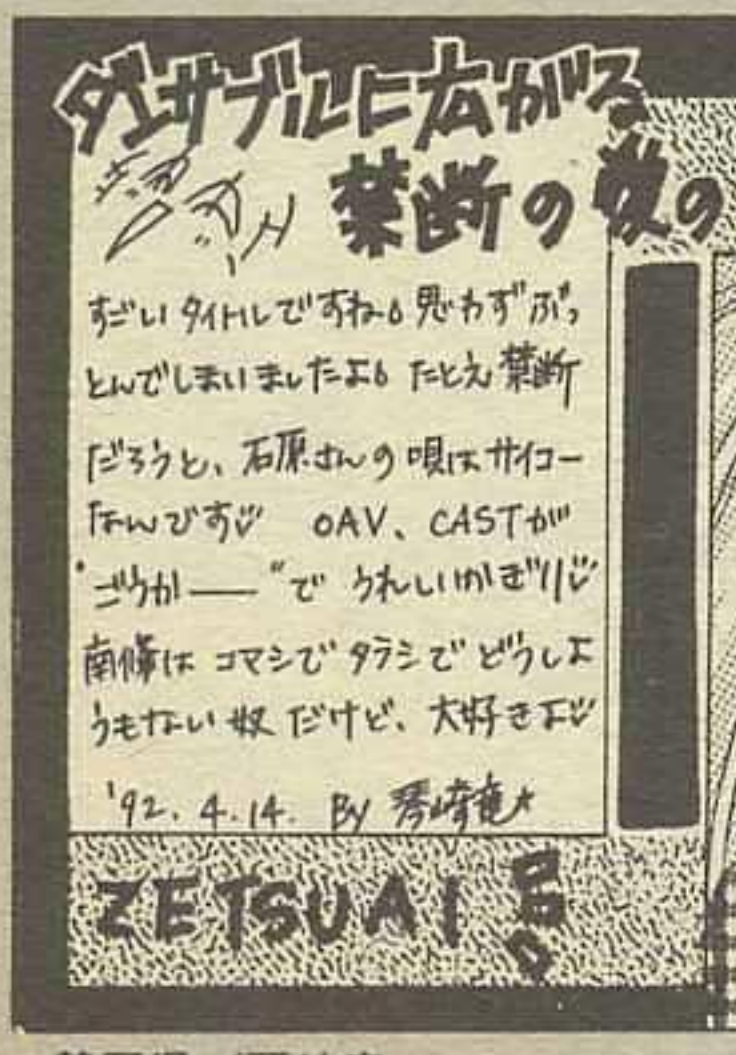 ダエサブルに広がる
禁断の奴の
すごいタイトルですね。思わずぶっ
とんでしまいましたよ。たとえ禁断
だろうと、石原さんの唄はサイコー
なんです♡ OAV、CASTが
“ごうか——”で うれしいかぎり♡
南條は コマシで タラシで どうしよ
うもない奴 だけど、大好きよ♡
'92. 4. 14. By 琴崎竜☆
ZETSUAI